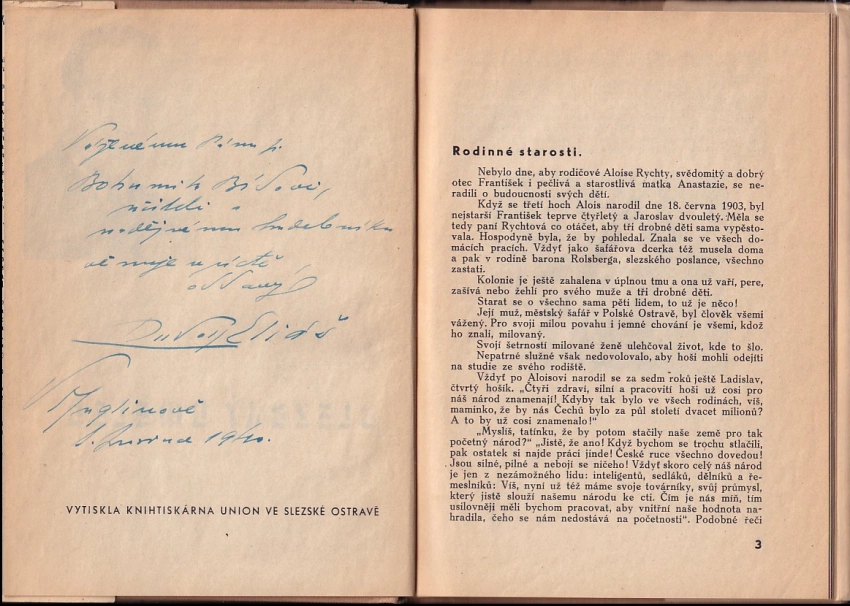 Bohumilu
učiteli a
nadějnému hudebníku
věnuje v úctě
oddaný
Eliáš
V Muglinově
1940.
VYTISKLA KNIHTISKÁRNA UNION VE SLEZSKÉ OSTRAVĚ
Rodinné starosti.
Nebylo dne, aby rodičové Aloise Rychty, svědomitý a dobrý
otec František i pečlivá a starostlivá matka Anastazie, se ne-
radili o budoucnosti svých dětí.
Když se třetí hoch Alois narodil dne 18. června 1903, byl
nejstarší František teprve čtyřletý a Jaroslav dvouletý. Měla se
tedy paní Rychtová co otáčet, aby tři drobné děti sama vypěsto-
vala. Hospodyně byla, že by pohledal. Znala se ve všech do-
mácích pracích. Vždyť jako šafářova dcerka též musela doma
a pak v rodině barona Rolsberga, slezského poslance, všechno
zastati.
Kolonie je ještě zahalena v úplnou tmu a ona už vaří, pere,
zašívá nebo žehlí pro svého muže a tři drobné děti.
Starat se o všechno sama pěti lidem, to už je něco!
Její muž, městský šafář v Polské Ostravě, byl člověk všemi
vážený. Pro svoji milou povahu i jemné chování je všemi, kdož
ho znali, milovaný.
Svojí šetrností milované ženě ulehčoval život, kde to šlo.
Nepatrné služné však nedovolovalo, aby hoši mohli odejíti
na studie ze svého rodiště.
Vždyť po Aloisovi narodil se za sedm roků ještě Ladislav,
čtvrtý hošík. „Čtyři zdraví, silní a pracovití hoši už cosi pro
náš národ znamenají! Kdyby tak bylo ve všech rodinách, víš,
maminko, že by nás Čechů bylo za půl století dvacet milionů?
A to by už cosi znamenalo!“
„Myslíš, tatínku, že by potom stačily naše země pro tak
početný národ?“ „Jistě, že ano! Když bychom se trochu stlačili,
pak ostatek si najde práci jinde! České ruce všechno dovedou!
Jsou silné, pilné a nebojí se ničeho! Vždyť skoro celý náš národ
je jen z nezámožného lidu: inteligentů, sedláků, dělníků a ře-
meslníků: Víš, nyní už též máme svoje továrníky, svůj průmysl,
který jistě slouží našemu národu ke cti. Čím je nás míň, tím
usilovněji měli bychom pracovat, aby vnitřní naše hodnota na-
hradila, čeho se nám nedostává na početnosti“. Podobné řeči
3